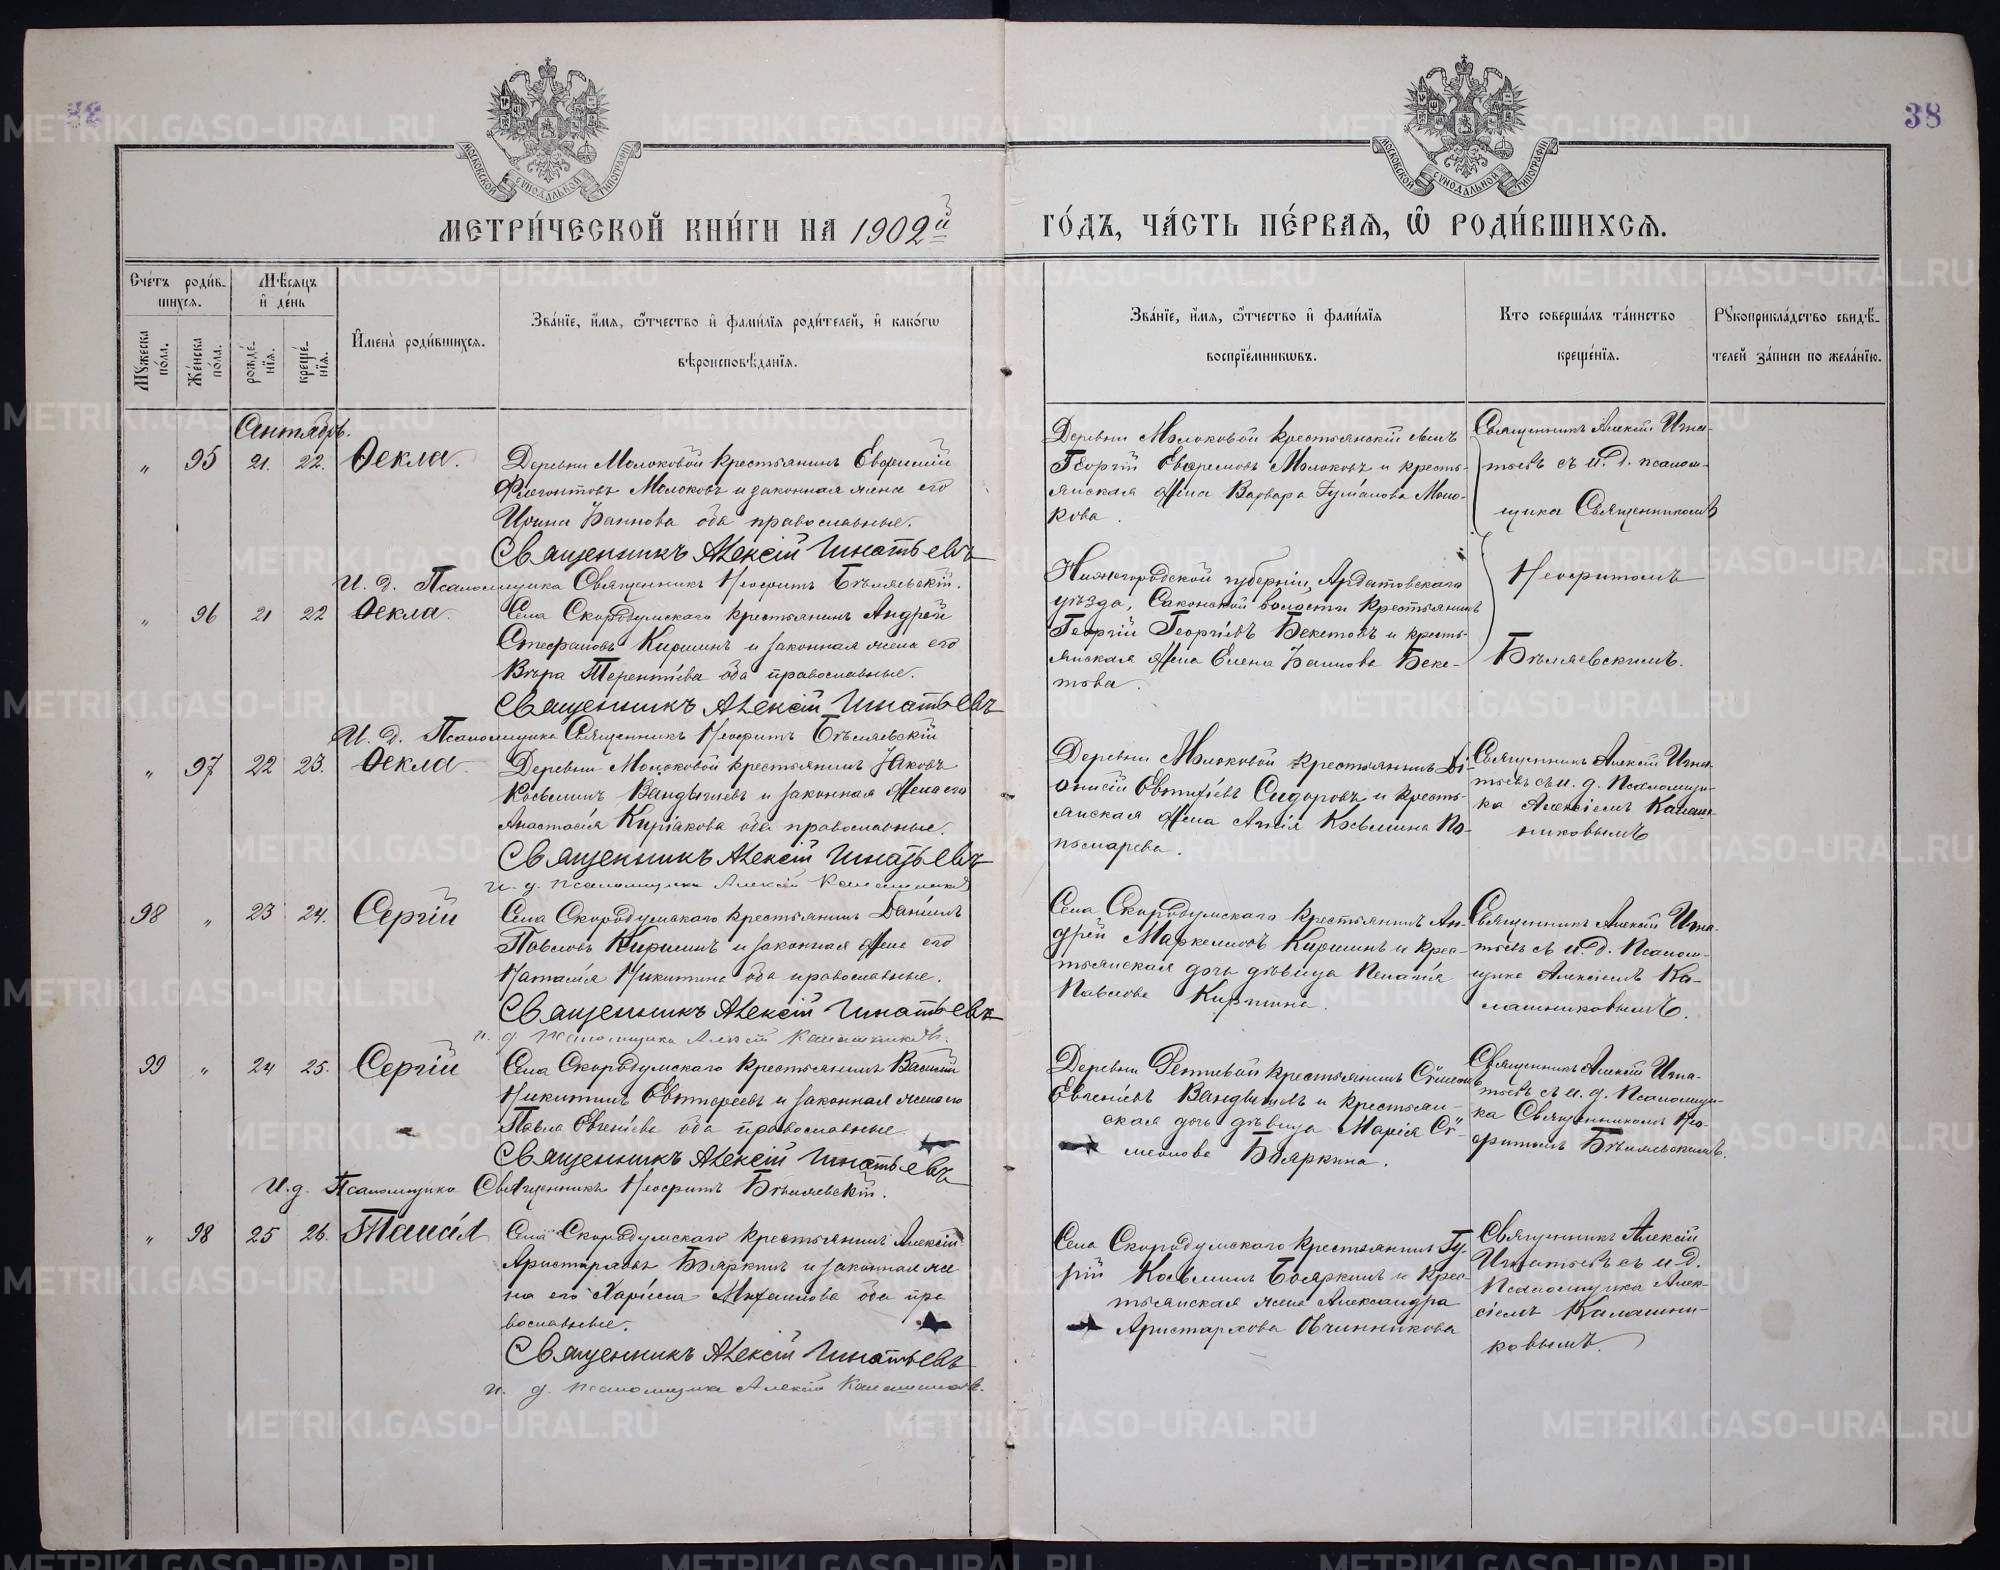 38
38
МЕТРИ́ЧЕСКОЙ КНИ́ГИ НА 1902й
ГО́ДЪ, ЧА́СТЬ ПЕ́РВАѦ, Ѽ РОДИ́ВШИХСѦ.
Сче́тъ роди́в-
шихся.
Мѣ́сяцъ
и҆ де́нь
Мꙋжеска
по́ла.
Же́нска
по́ла.
рожде́-
нїѧ.
креще́-
нїѧ.
И҆мена̀ роди́вшихсѧ.
Зва́нїе, и҆́мѧ, ѻ҆́тчество и҆ фами́лїѧ роди́телей, и҆ како́гѡ
вѣроисповѣ́данїѧ.
Зва́нїе, и҆́мѧ, ѻ҆́тчество и҆ фами́лїѧ
воспрїе́мникѡвъ.
Кто соверша́лъ та́инство
креще́нїѧ.
Рꙋкоприкла́дство свидѣ́-
телей за́писи по жела́нїю.
Сентябрь.
„ 95 21. 22. Ѳекла.
Деревни Молоковой крестьянинъ Евѳимій
Флегонтовъ Молоковъ и законная жена его
Ирина Іаннова оба православные.
Священникъ Алексій Игнатьевъ
И. д. Псаломщика Священникъ Неофитъ Бѣляевскій.
Деревни Молоковой крестьянскій сынъ
Георгій Евфремовъ Молоковъ и кресть-
янская жена Варвара Молo-
кова.
Священникъ Алексій Игна-
тьевъ съ и. д. псалом-
щика Священникомъ
Неофитомъ
Бѣляевскимъ.
„ 96 21 22 Ѳекла.
Села Скородумскаго крестьянинъ Андрей
Стефановъ Киршинъ и законная жена его
Вѣра Терентіева оба православные.
Священникъ Алексій Игнатьевъ
И. д. Псаломщика Священникъ Неофитъ Бѣляевскій
Нижегородской губерніи, Ардатовскаго
уѣзда, Саконской волости крестьянинъ
Георгій Георгіевъ Бекетовъ и кресть-
янская жена Елена Іаннова Беке-
това.
„ 97 22 23. Ѳекла.
Деревни Молоковой крестьянинъ Іаковъ
Косьминъ Вандышевъ и законная жена его
Анастасія Киріакова оба православные.
Священникъ Алексій Игнатьевъ
и. д. псаломщика Алексій Калашниковъ
Деревни Молоковой крестьянинъ Ді-
онисій Евтихіевъ Сидоровъ и кресть-
янская жена Косьмина По-
номарева.
Священникъ Алексій Игна-
тьевъ съ и. д. Псаломщи-
ка Алексіемъ Калаш-
никовымъ
98 „ 23 24. Сергій
Села Скородумскаго крестьянинъ Даніилъ
Павловъ Киршинъ и законная жена его
Наталія Никитина оба православные.
Священникъ Алексій Игнатьевъ
и. д. псаломщика Алексій Калашниковъ.
Села Скородумскаго крестьянинъ Ан-
дрей Маркелловъ Киршинъ и крес-
тьянская дочь дѣвица Пелагія
Павлова Киршина.
Священникъ Алексій Игна-
тьевъ съ и. д. Псалом-
щика Алексіемъ Ка-
лашниковымъ.
99 „ 24 25. Сергій
Села Скородумскаго крестьянинъ Василій
Никитинъ и законная жена его
Павла Евгеніева оба православные
Священникъ Алексій Игнатьевъ
И. д. Псаломщика Священникъ Неофитъ Бѣляевскій.
Деревни крестьянинъ Сѵмеонъ
Евгеніевъ Вандышевъ и крестьян-
ская дочь дѣвица Марія Сѵ-
меонова Бояркина.
Священникъ Алексій Игна-
тьевъ съ и. д. Псаломщи-
ка Священникомъ Нео-
фитомъ Бѣляевскимъ.
„ 98 25 26. Таисія
Села Скородумскаго крестьянинъ Алексій
Аристарховъ Бояркинъ и законная же
на его Харіесса Михаилова оба пра
вославные.
Священникъ Алексій Игнатьевъ
и. д. псаломщика Алексій Калашниковъ.
Села Скородумскаго крестьянинъ Гу-
рій Косьминъ Бояркинъ и крес-
тьянская жена Александра
Аристархова Овчинникова
Священникъ Алексій
Игнатьевъ съ и. д.
Псаломщика Алек-
сіемъ Калашни-
ковымъ.